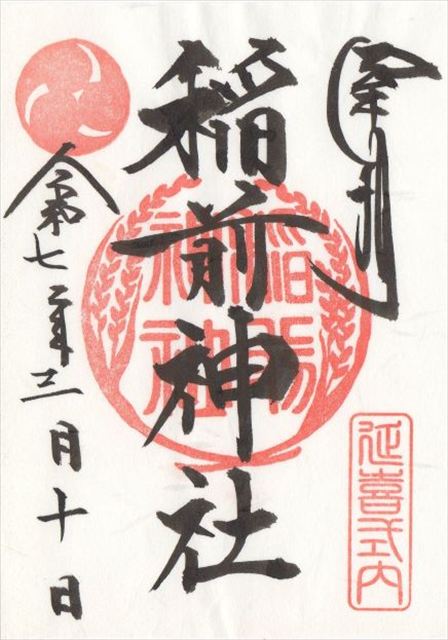 奉拝
延喜式内
稲前神社
令和七年三月十日